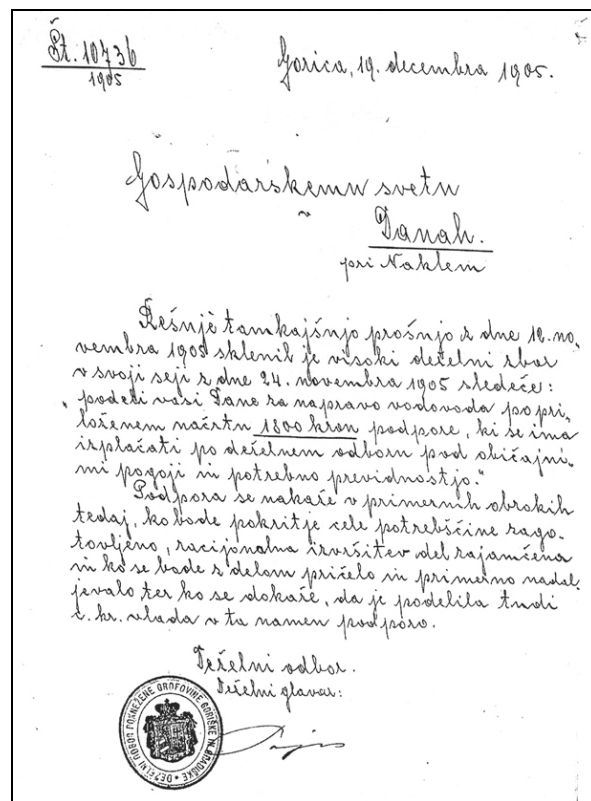 Št. 10736
1905
Gorica, 19. decembra 1905.
Gospodarskemu svetu
v
Danah.
pri Naklem
Rešujé tamkajšnjo prošnjo z dne 12. no-
vembra 1905 sklenil je visoki deželni zbor
v svoji seji z dne 24. novembra 1905 sledeče:
„podeli vasi Dane za napravo vodovoda po pri-
loženem načrtu 1800 kron podpore, ki se ima
izplačati po deželnem odboru pod običajni-
mi pogoji in potrebno previdnostjo.“
Podpora se nakaže v primernih obrokih
tedaj, ko bode pokritje cele potrebščine zago-
tovljeno, racijonalna izvršitev del zajamčena
in ko se bode z delom pričelo in primerno nadal-
jevalo, ter ko se dokaže, da je podelila tudi
c. kr. vlada v ta namen podporo.
Deželni odbor.
Deželni glavar:
DEŽELNI ODBOR POKNEŽENE GROFOVINE GORIŠKE IN GRADIŠKE